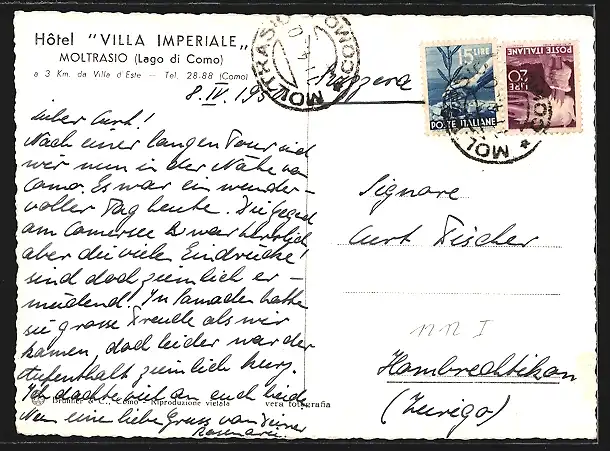 Hôtel "VILLA IMPERIALE"
MOLTRASIO (Lago di Como)
a 3 Km. da Villa d'Este — Tel. 28-88 (Como)
8. IV. 195
Lieber Curt!
Nach einer langen Tour sind
wir nun in der Nähe von
Como. Es war ein wunder-
voller Tag heute. Die Gegend
am Comersee war herrlich,
aber die vielen Eindrücke
sind doch ziemlich er-
müdend! In hatte
sie grosse Freude als wir
kamen, doch leider war der
Aufenthalt ziemlich kurz.
Ich dachte viel an euch beide
Nun eine liebe Gruss von Deiner
Rosmarie.
Brunner & C., Como - Riproduzione vietata
vera fotografia
MOLTRASIO COMO
Svizzera
15 LIRE
POSTE ITALIANE
POSTE ITALIANE
LIRE 20
Signore
Curt Fischer
I
Hombrechtikon
(Zurigo)